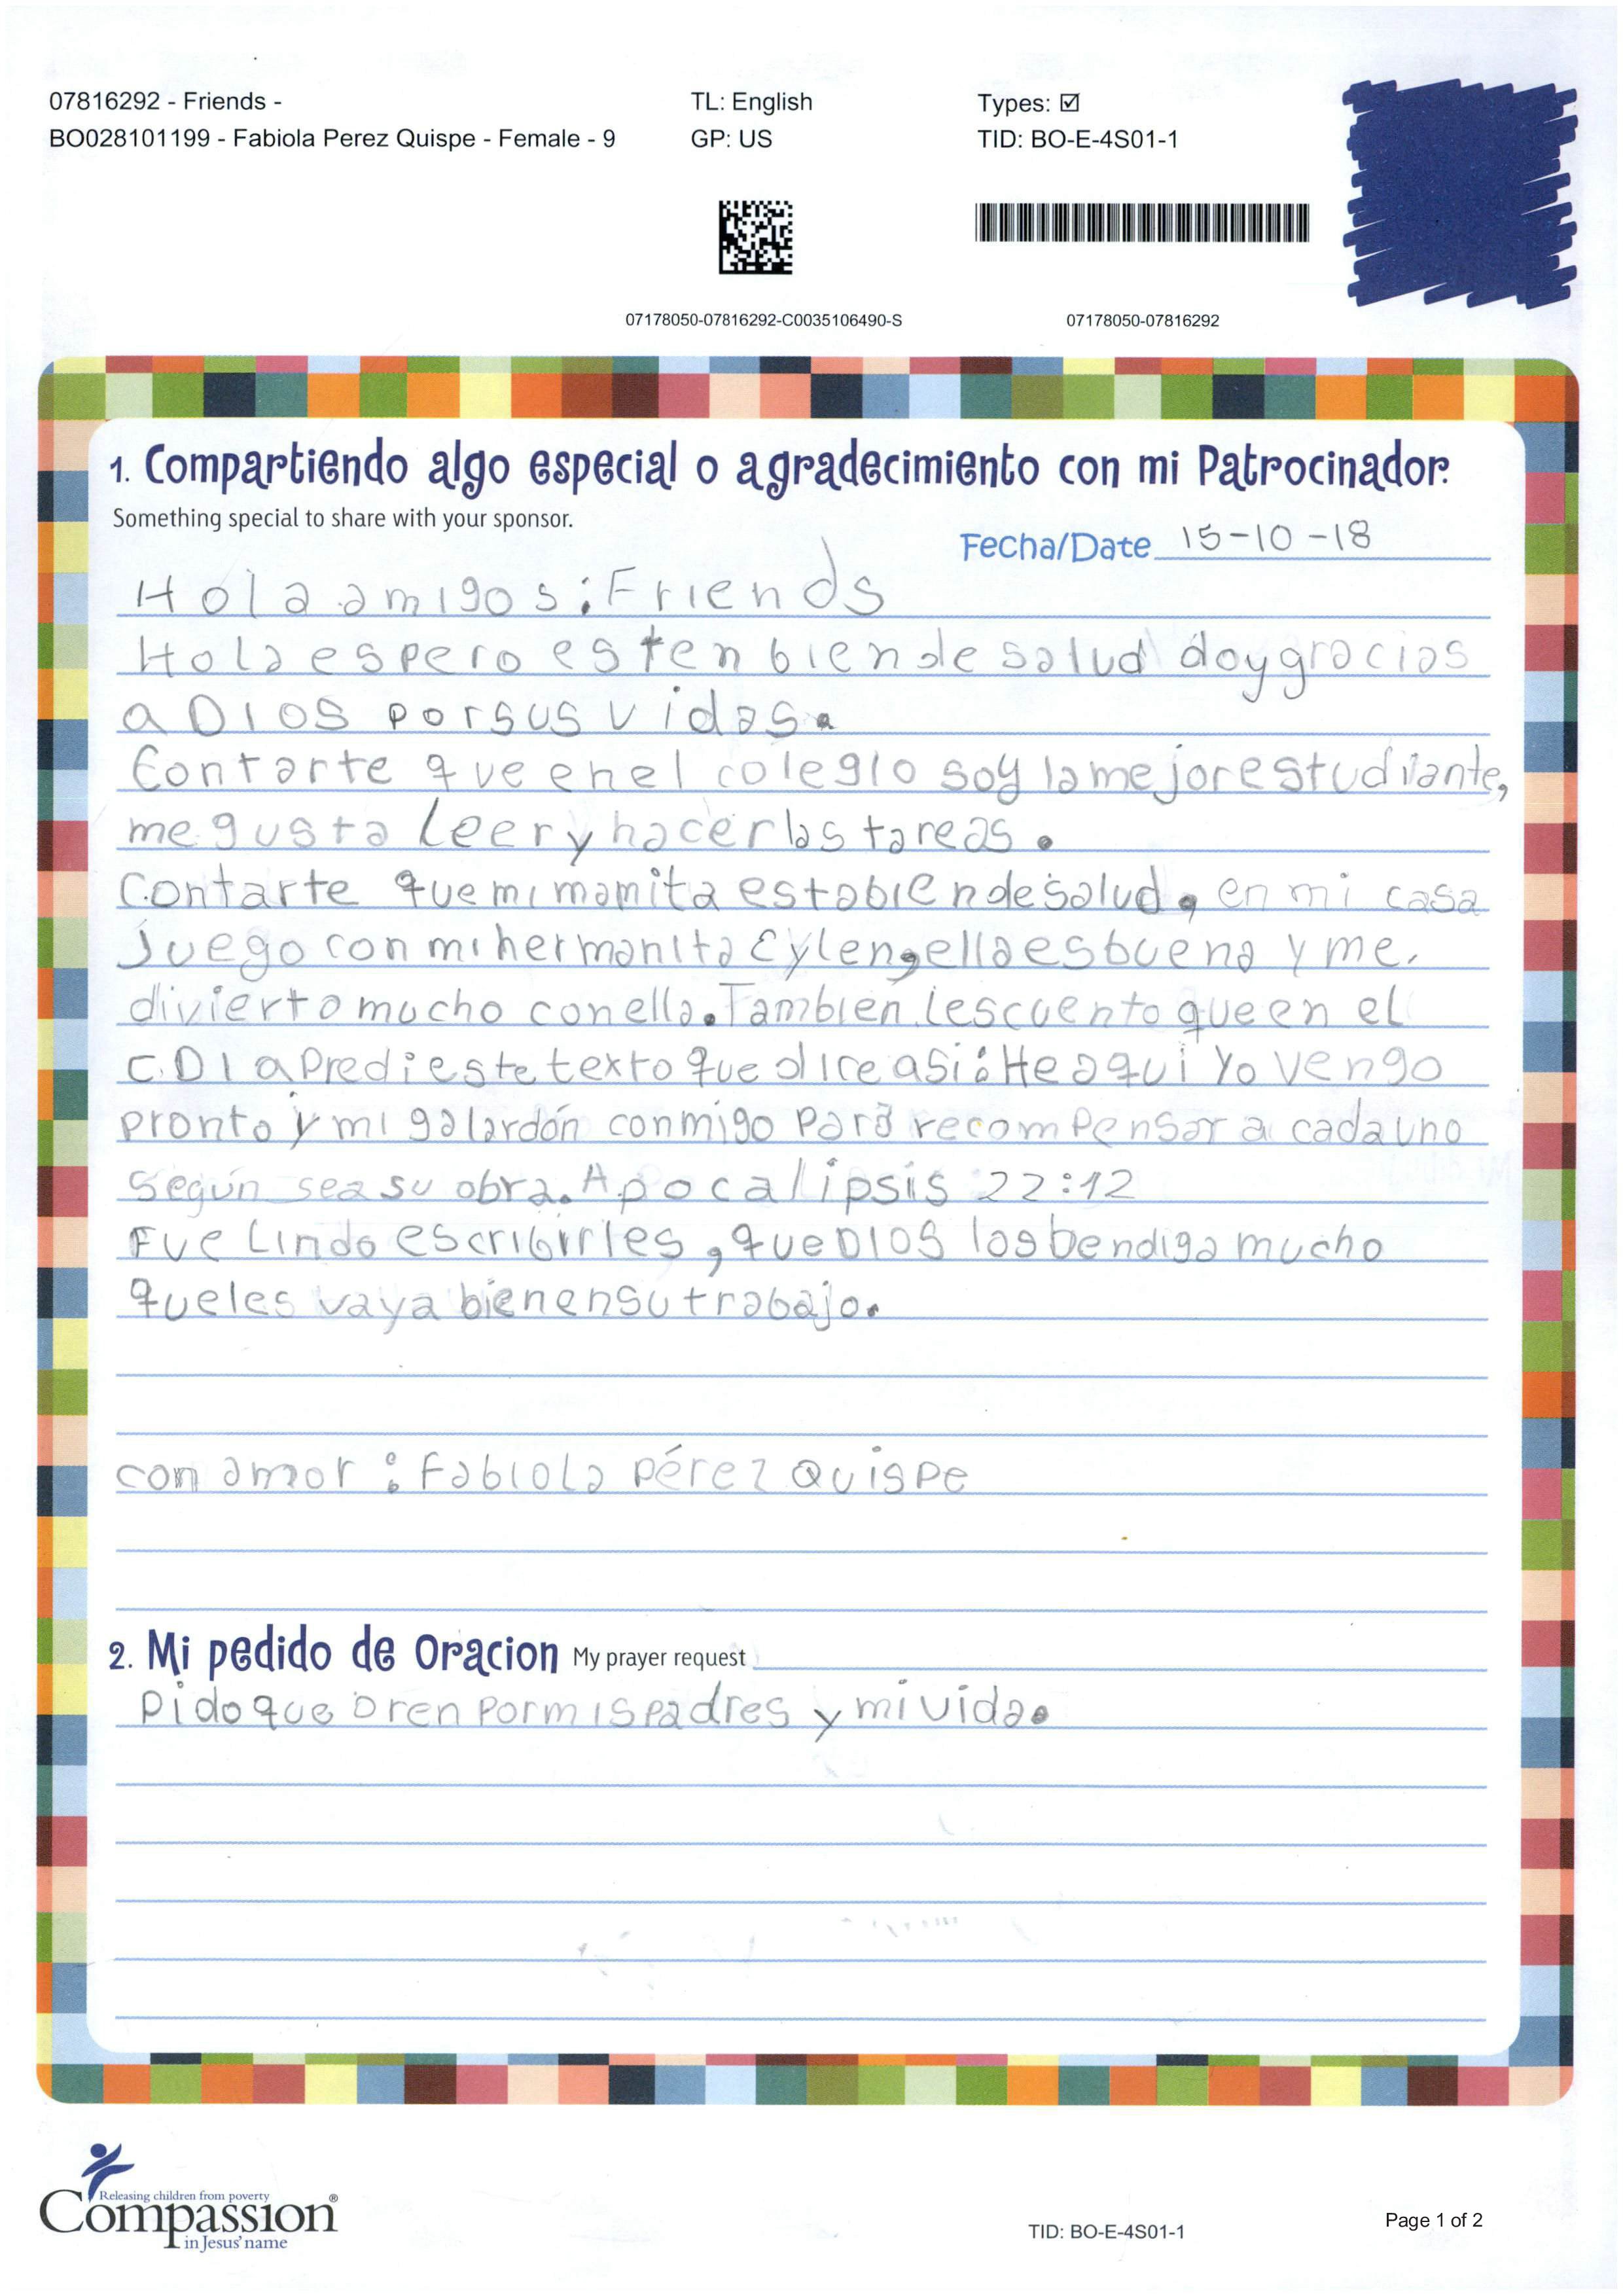 07816292 - Friends -
BO028101199 - Fabiola Perez Quispe - Female - 9
TL: English
GP: US
Types: ☑
TID: BO-E-4S01-1
07178050-07816292-C0035106490-S
07178050-07816292
1. Compartiendo algo especial o agradecimiento con mi Patrocinador.
Something special to share with your sponsor.
Fecha/Date 15-10-18
Hola amigos: Friends
Hola espero esten bien de salud doy gracias
a DIOS por sus vidas.
Contarte que en el colegio soy la mejor estudiante,
me gusta Leer y hacer las tareas.
Contarte que mi mamita esta bien de salud, en mi casa
Juego con mi hermanita Eylen, ella es buena y me
divierto mucho con ella. Tambien Les cuento que en el
CDI apredi este texto que dice asi: He aqui Yo vengo
pronto y mi galardón conmigo para recompensar a cada uno
según sea su obra. Apocalipsis 22:12
Fue Lindo escribirles, que DIOS los bendiga mucho
que les vaya bien en su trabajo.
con amor: Fabiola Pérez Quispe
2. Mi pedido de Oracion My prayer request
Pido que oren por mis padres y mi vida.
Releasing children from poverty
Compassion®
in Jesus' name
TID: BO-E-4S01-1
Page 1 of 2